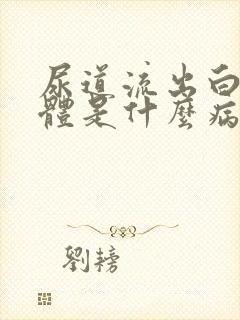 尿道流出白
體是什麼病
劉轃